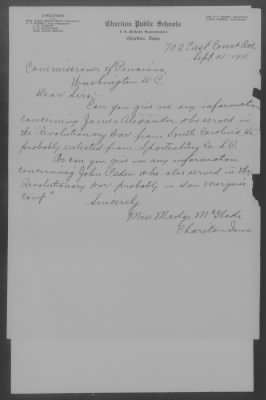 DIRECTORS
Chariton Public Schools
Superintendent
Chariton, Iowa
702 East Court Ave
Sept. 25 1911
Commissioner of Pensions,
Washington D.C.
Dear Sirs:-
Can you give me any information
concerning James Alexander who served in
the Revolutionary War from South Carolina &
probably enlisted from Spartenburg Co. S.C.
Or can you give me any information
concerning John Peden who also served in the
Revolutionary War probably in Dan Morgan's
Camp"
Sincerely
Miss Madge McGlade
Chariton Iowa